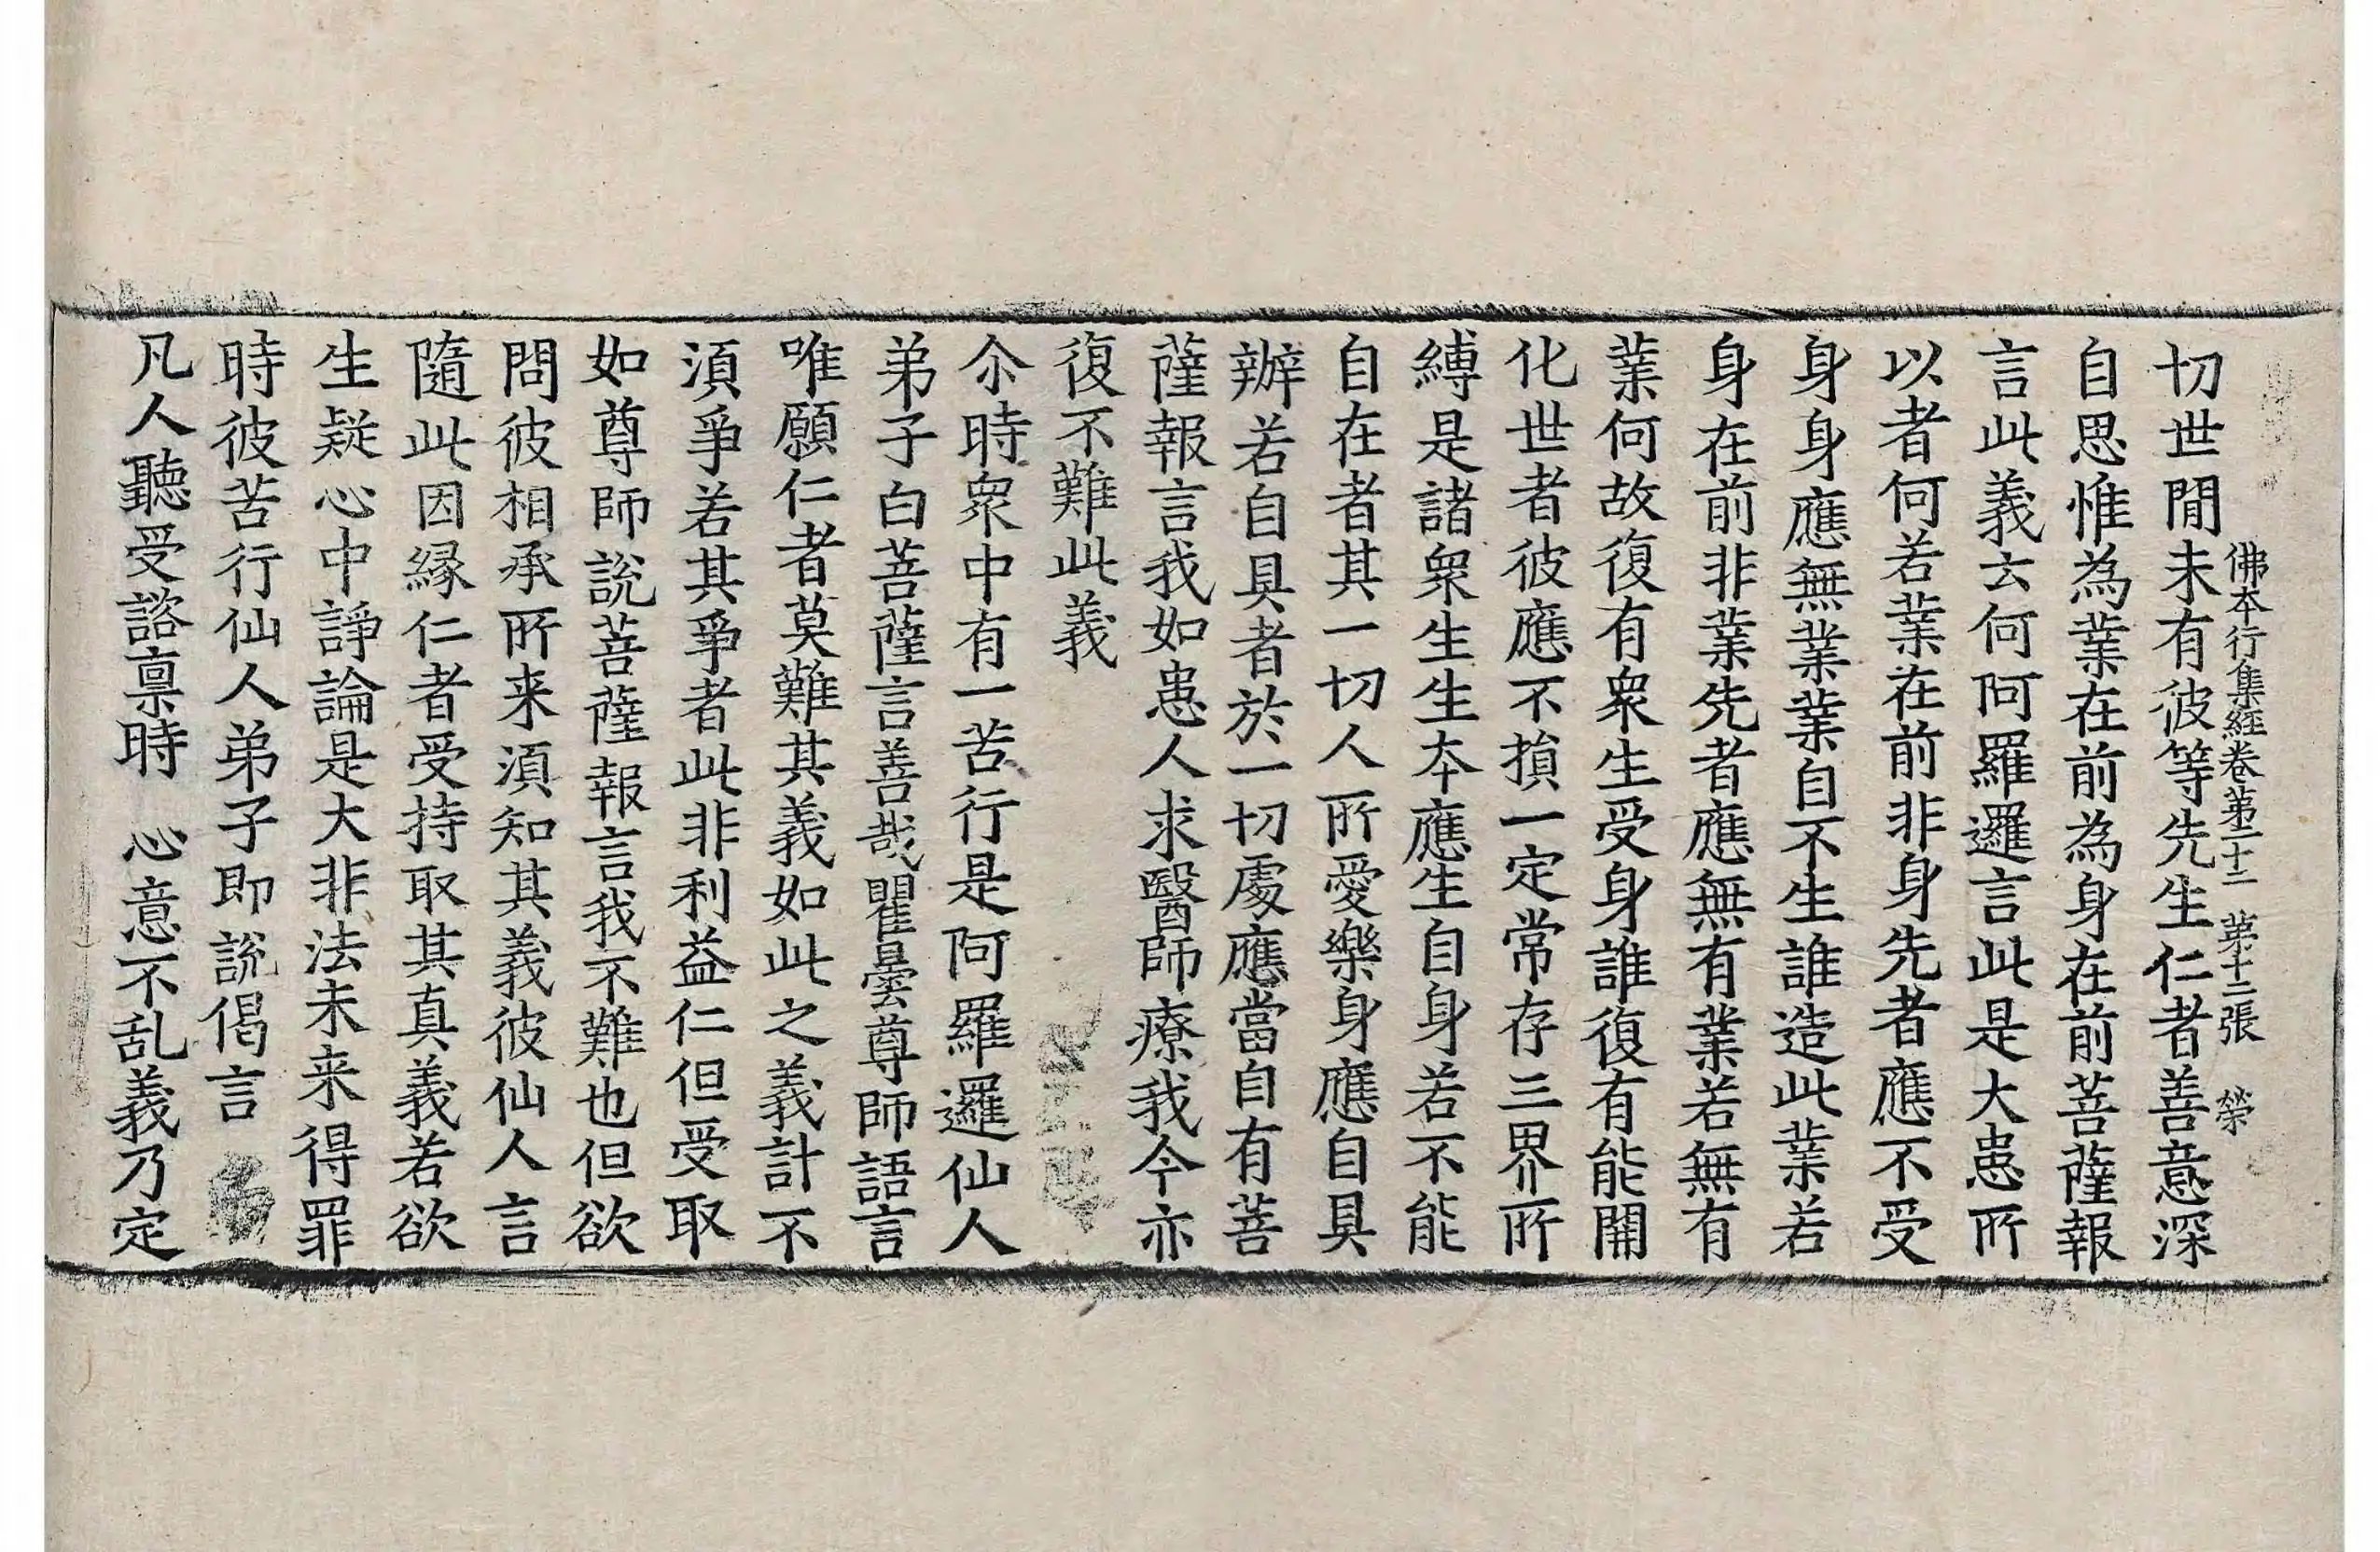 切世間未有彼等先生仁者善意深
佛本行集經卷第二十二 第十二張 榮
自思惟為業在前為身在前菩薩報
言此義云何阿羅邏言此是大患所
以者何若業在前非身先者應不受
身身應無業業自不生誰造此業若
身在前非業先者應無有業若無有
業何故復有衆生受身誰復有能開
化世者彼應不損一定常存三界所
縛是諸衆生生本應生自身若不能
自在者其一切人所愛樂身應自具
辦若自具者於一切處應當自有菩
薩報言我如患人求醫師療我今亦
復不難此義
尒時衆中有一苦行是阿羅邏仙人
弟子白菩薩言善哉瞿曇尊師語言
唯願仁者莫難其義如此之義計不
湏爭若其爭者此非利益仁但受取
如尊師說菩薩報言我不難也但欲
問彼相承所来湏知其義彼仙人言
隨此因縁仁者受持取其真義若欲
生疑心中諍論是大非法未来得罪
時彼苦行仙人弟子即說偈言
凡人聽受諮稟時 心意不乱義乃定